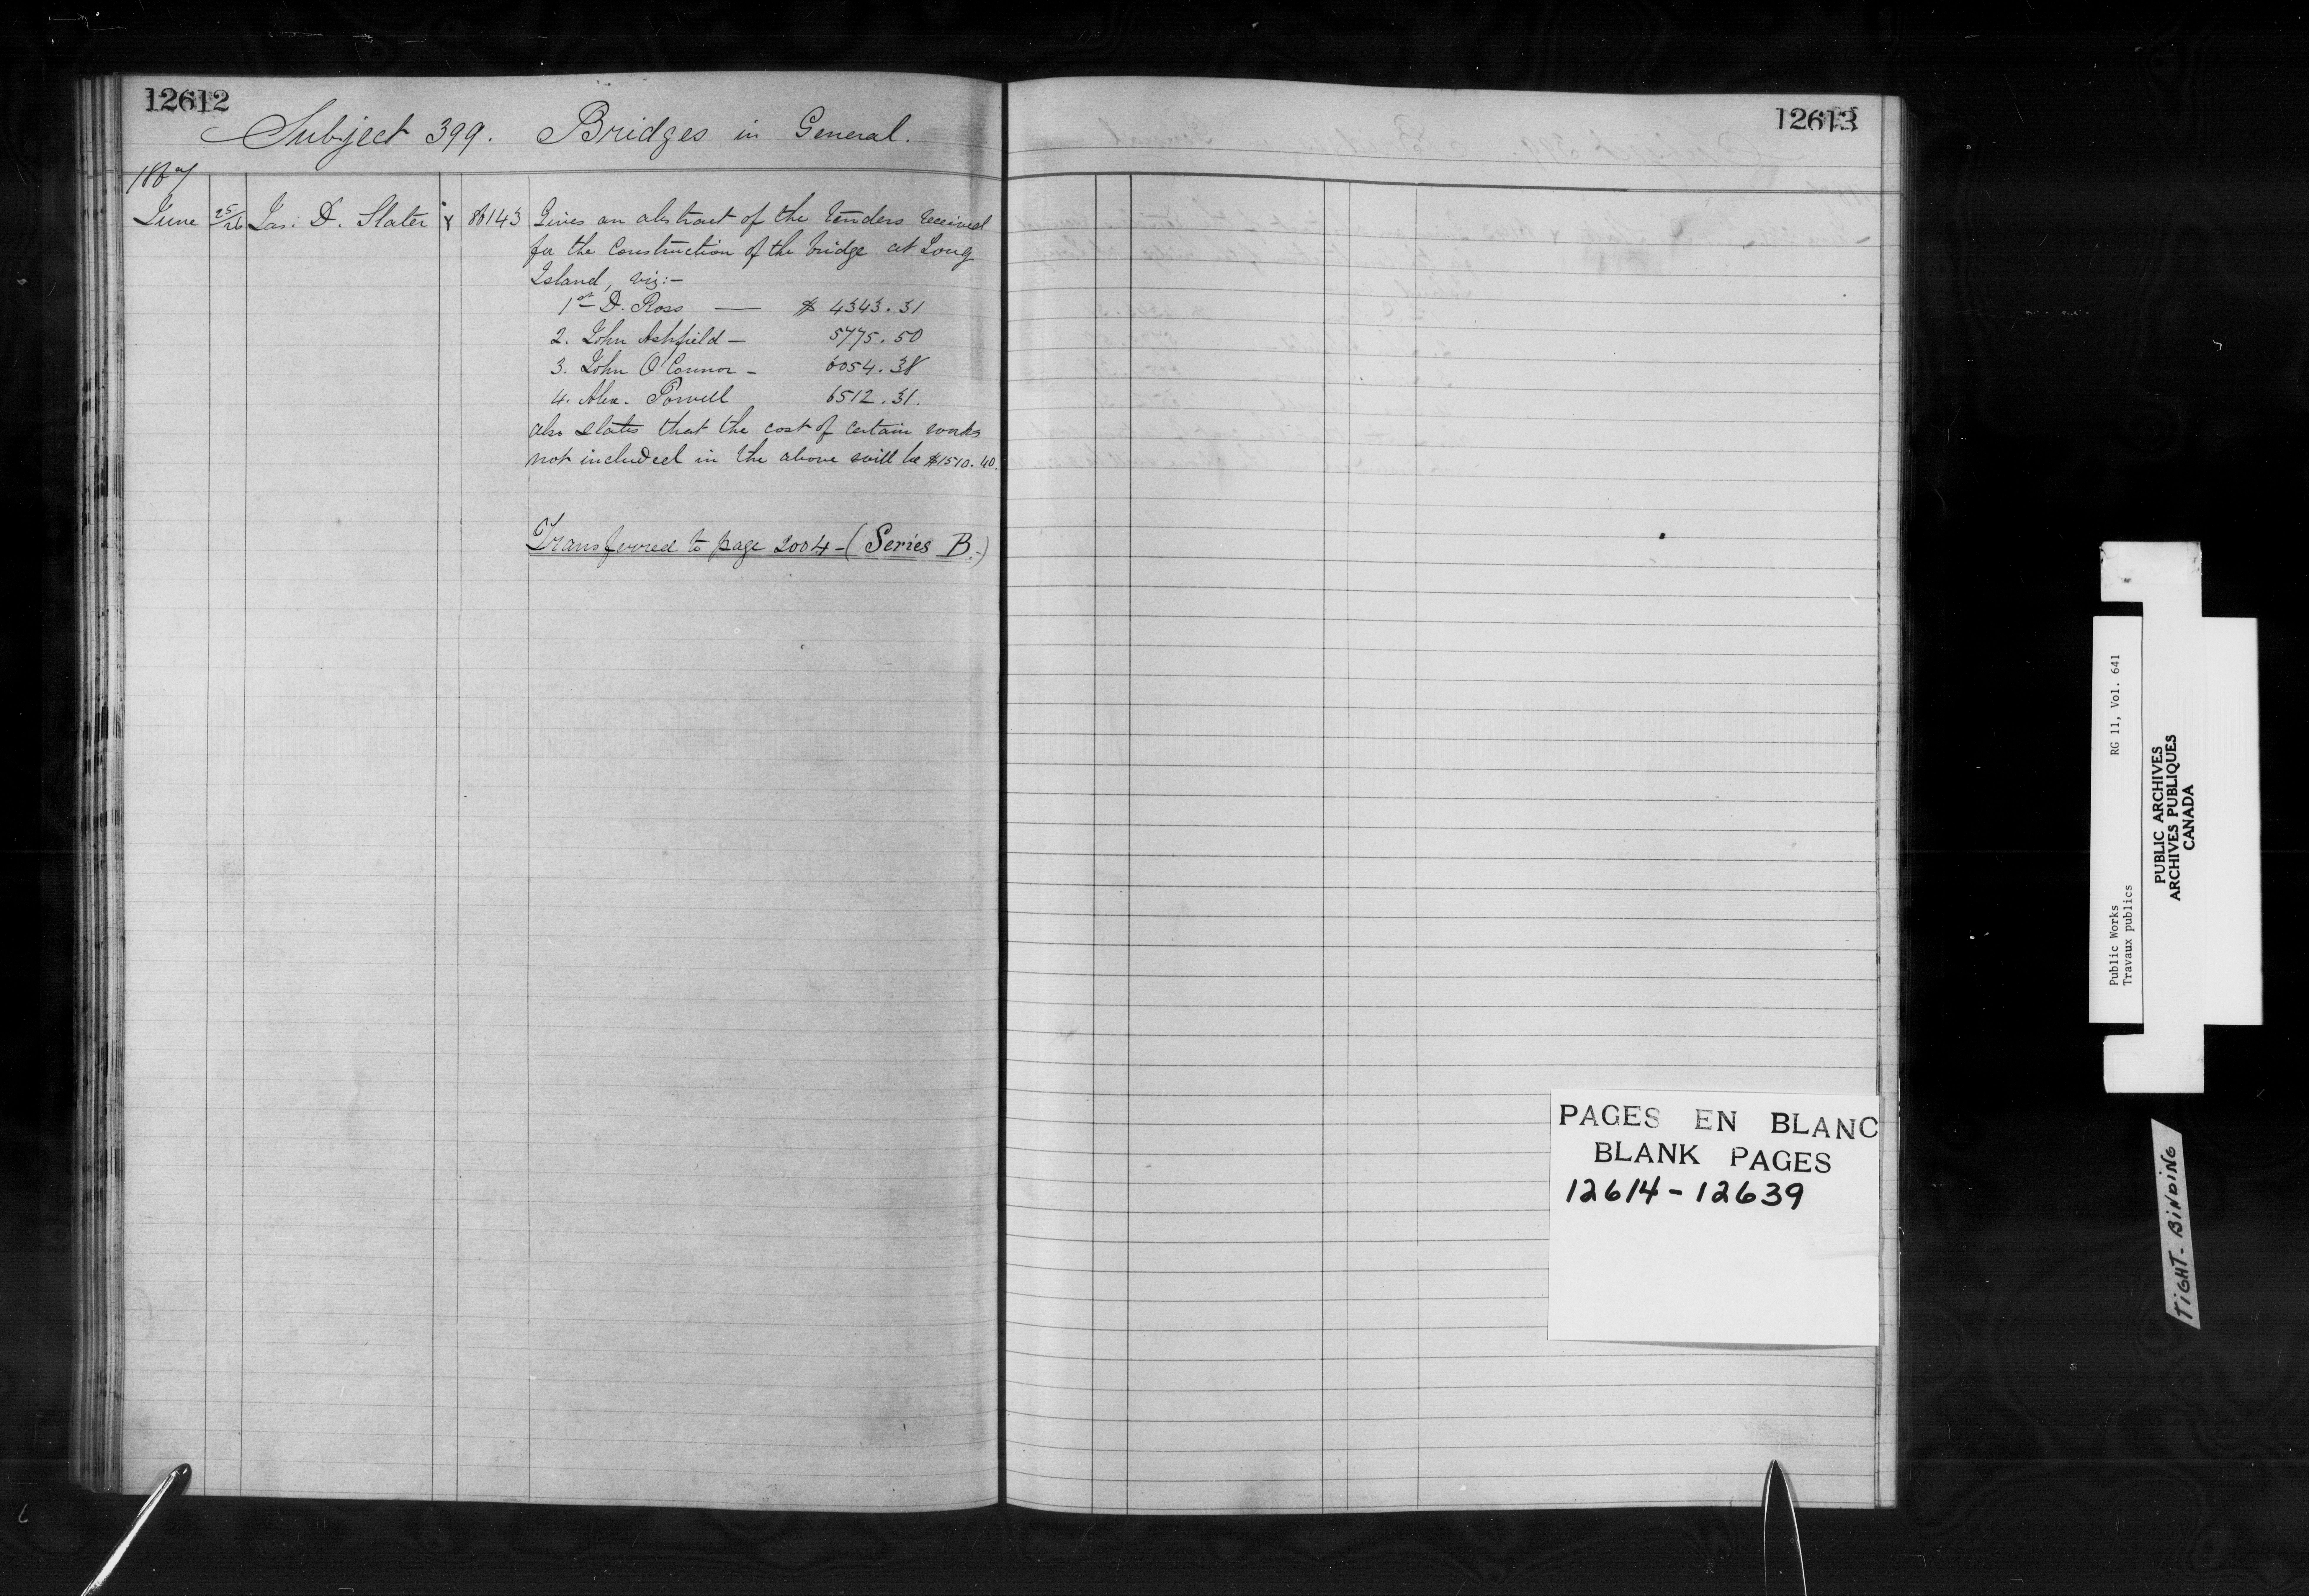 12612
Subject 399. Bridges in General.
1867
June 25/26 Jas. D. Slater 86143 Gives an abstract of the tenders received
for the construction of the bridge at Long
Island, viz:-
1st D. Ross — $ 4343.31
2. John Ashfield - 5775.50
3. John O'Connor - 6054.38
4. Alex. Powell 6512.31.
also states that the cost of certain works
not included in the above will be $1510.40.
Transferred to page 2004 - (Series B.-)
12613
PAGES EN BLANC
BLANK PAGES
12614 - 12639
Public Works RG 11, Vol. 641
Travaux publics
PUBLIC ARCHIVES
ARCHIVES PUBLIQUES
CANADA
TIGHT. BINDING